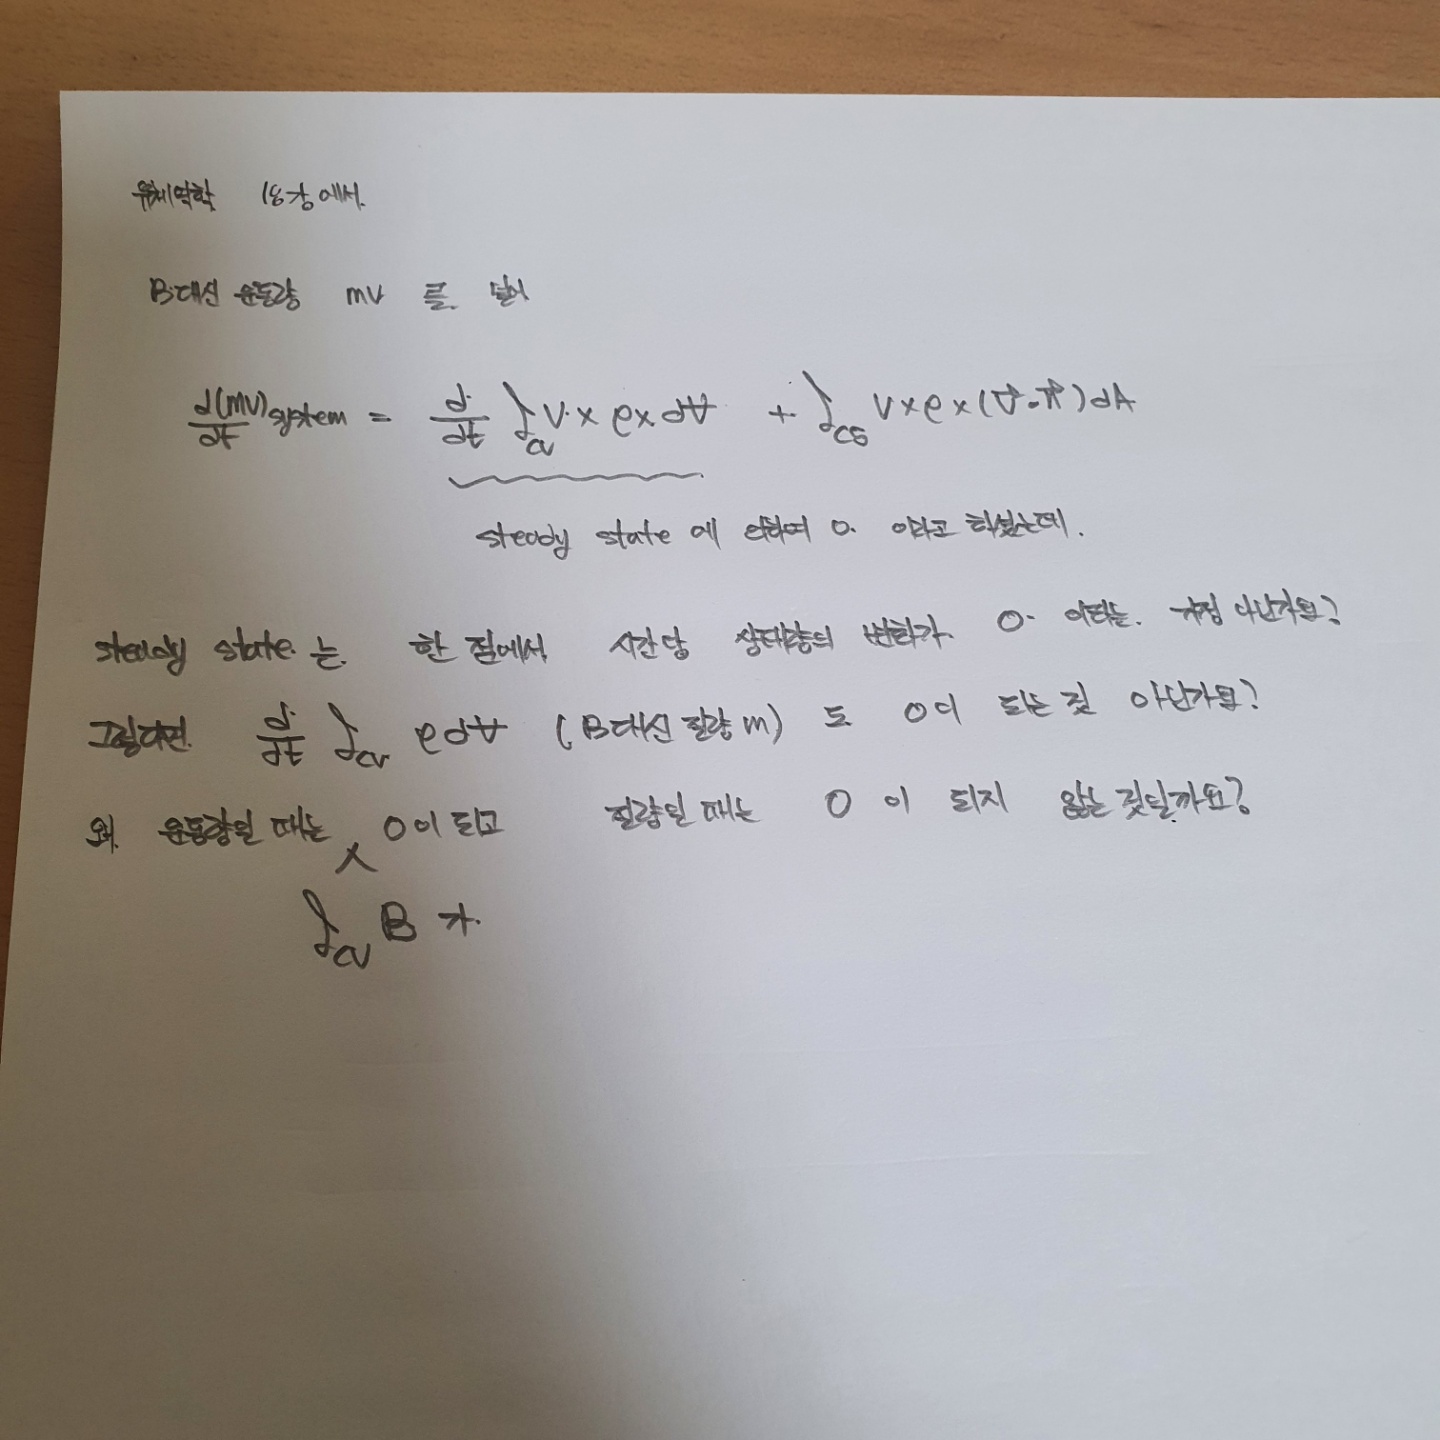 유체역학 18강에서.
B대신 운동량 mv 를 넣어
d(mv)/dt system = d/dt ∫cv V × ρ × dV + ∫cs V × ρ × (V⃗ · n⃗) dA
steady state 에 의하여 0. 이라고 하셨는데.
steady state 는 한 점에서 시간당 상태량의 변화가 0. 이라는 가정 아닌가요?
그렇다면 d/dt ∫cv ρdV (B대신 질량 m) 도 0이 되는 것 아닌가요?
왜 운동량일 때는 0이 되고 질량일 때는 0 이 되지 않는 것일까요?
∫cv B 가